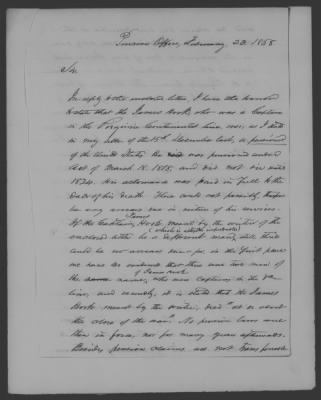 Pension Office, February 23. 1858
Sir
In reply to the enclosed letter, I have the honor
to state that the James Hook, who was a Captain
in the Virginia Continental line, was, as I stated
in my letter of the 15th December last, a pensioner
of the United States. He was pensioned under
Act of March 18. 1818, and did not die until
1824. His allowance was paid in full to the
date of his death. There could not possibly, therefore
be any arrears due in virtue of his services.
If the Captain James Hook meant by the writer of the
enclosed letter (which is utterly improbable) is a different man, still there
could be no arrears due - for in the first place
we have no evidence that there were two men of
the name of James Hook, who were Captains in the Va
line, and secondly, it is stated that the James
Hook meant by the writer, died "at or about
the close of the war." No pension laws were
then in force, nor for many years afterwards.
Besides, pension claims are not transferable